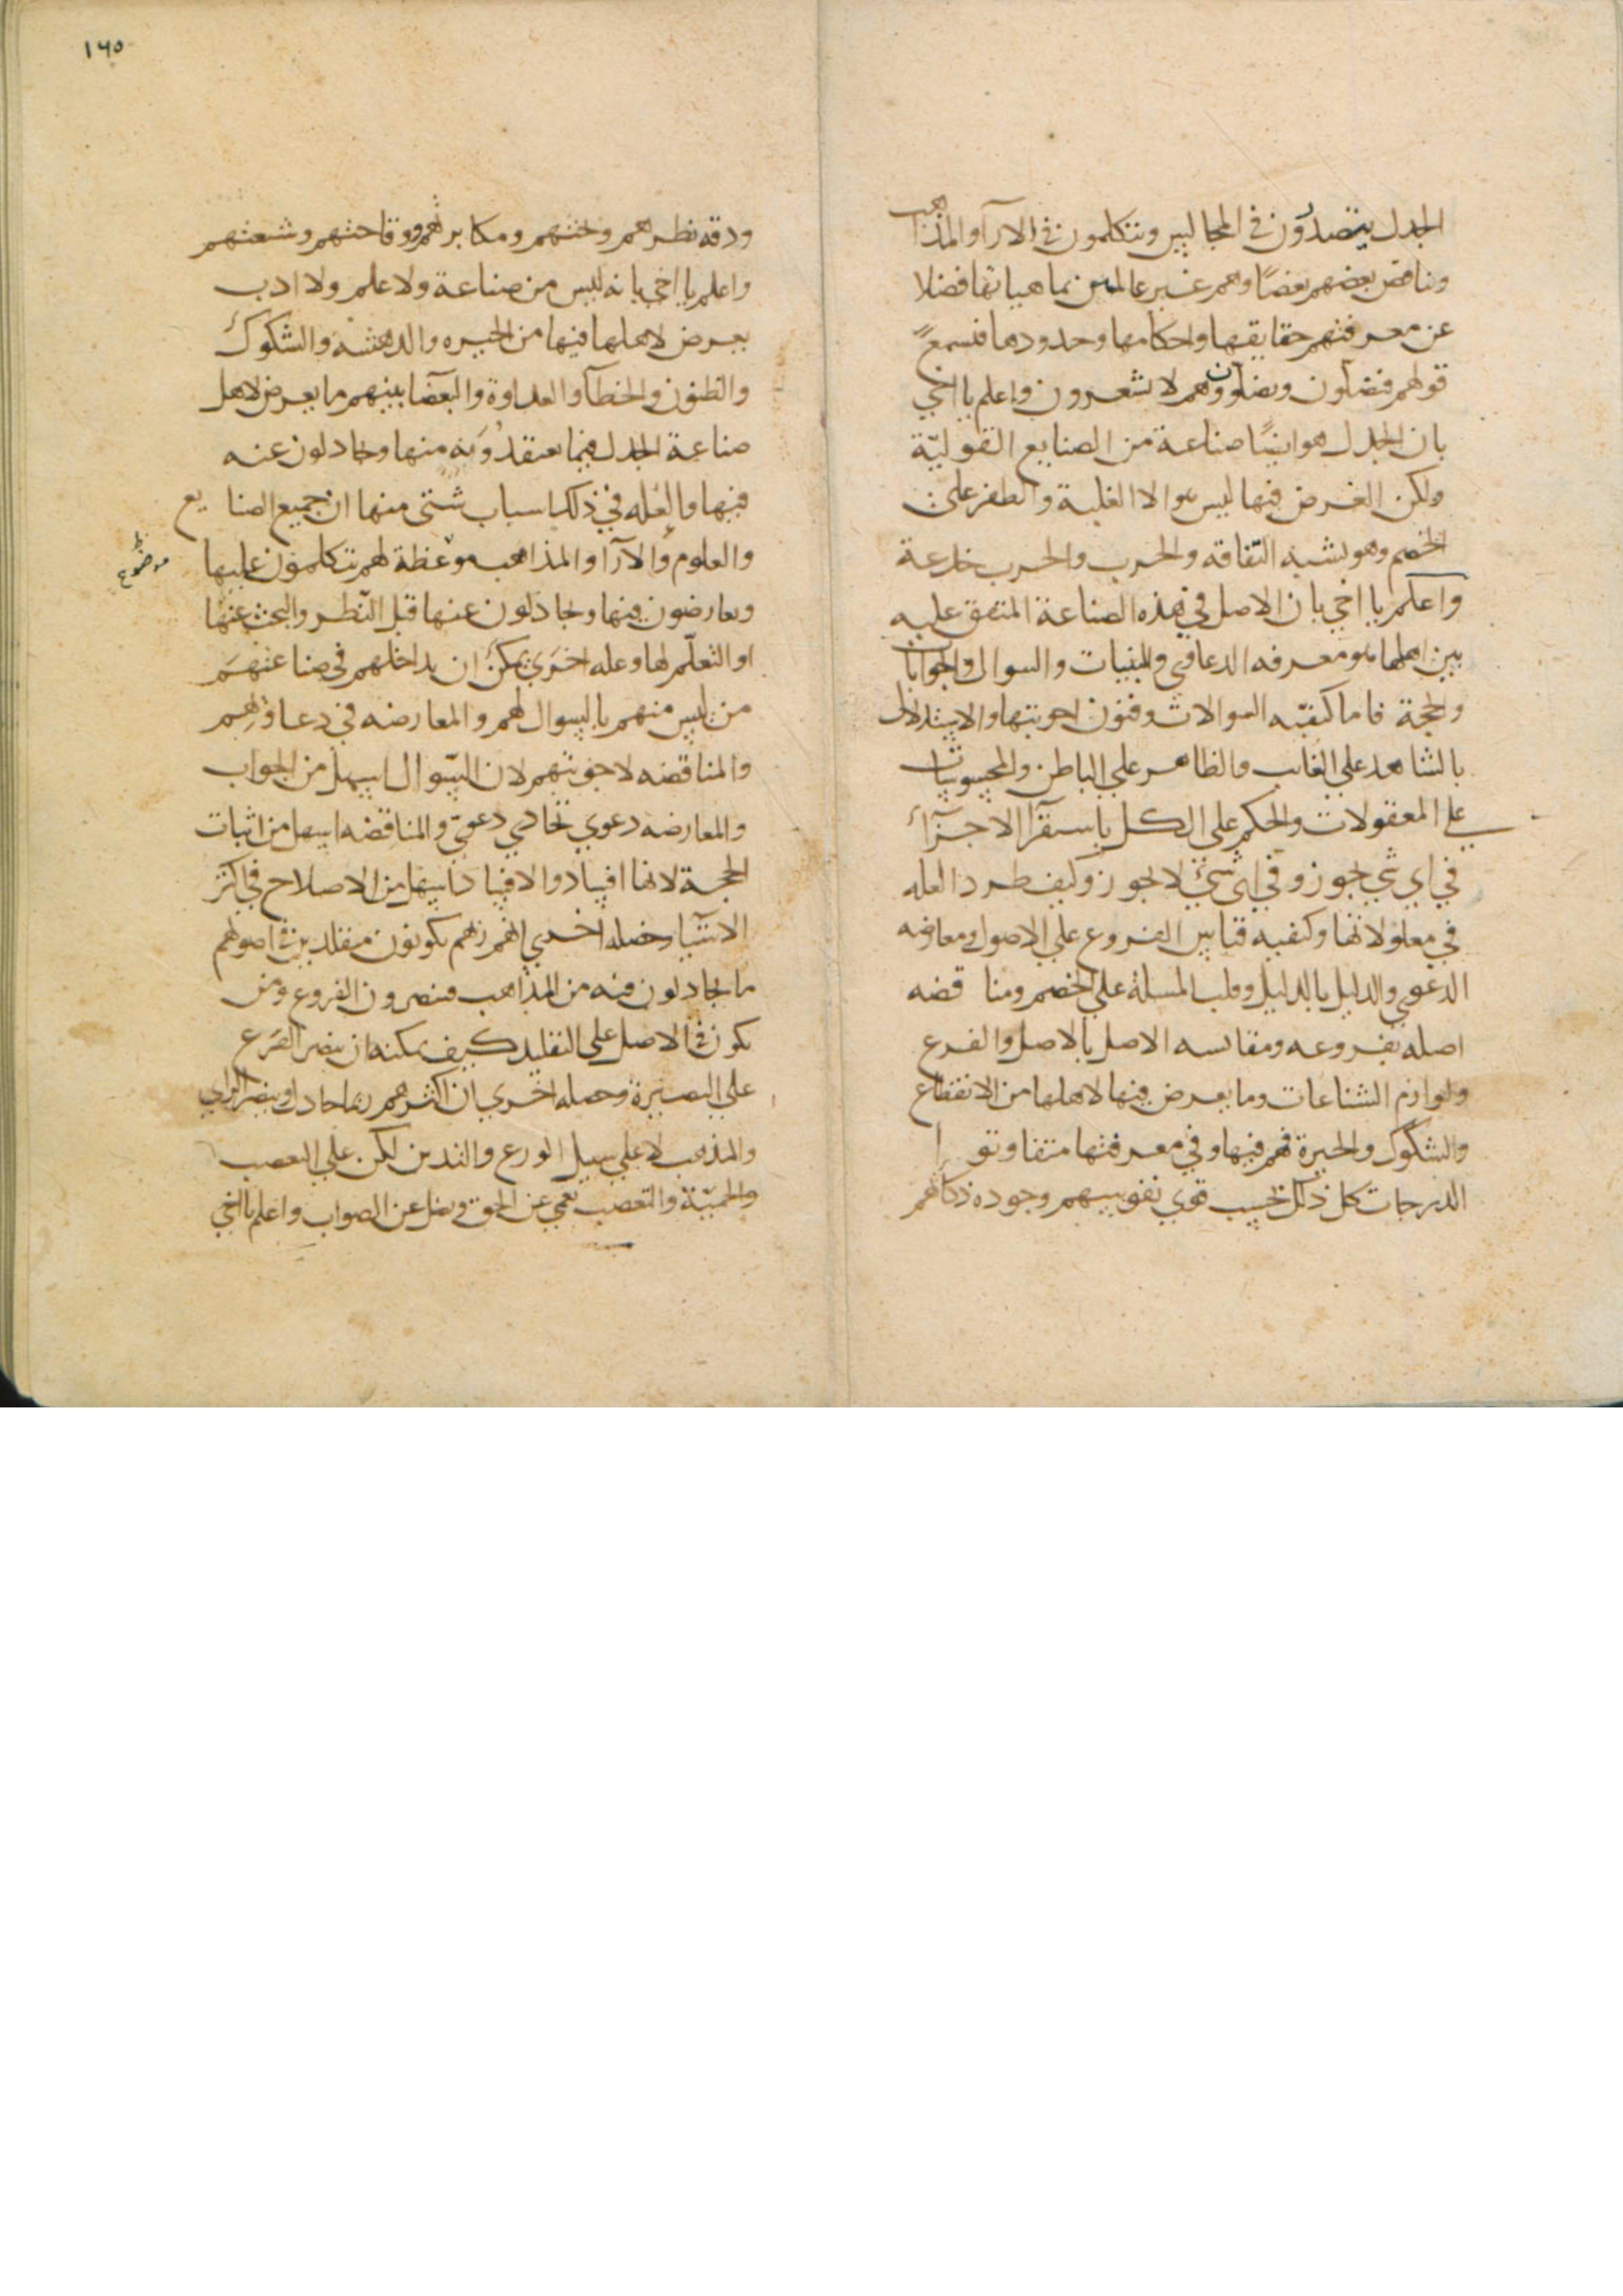 الجدل يتصدرون في المجاليس ويتكلمون في الارآ والمذاهب
ويناقض بعضهم بعضًا وهم غير عالمين بماهياتها فضلا
عن معرفتهم حقايقها واحكامها وحدودها فيسمع
قولهم فيضلون ويضلون وهم لا يشعرون واعلم يا اخي
بان الجدل هو ايضًا صناعة من الصنايع القوليّة
ولكن الغرض فيها ليس هو الا الغلبة والظفر على
الخصم وهو يشبه النفاقه والحرب والحرب خدعة
واعلم يا اخي بان الاصل في هذه الصناعة المتفق عليه
بين اهلها هو معرفه الدعاوي والبينات والسوال والجوابات
والحجة فاما كيفيّه السوالات وفنون اجوبتها والاستدلال
بالشاهد على الغائب والظاهر علي الباطن والمحسوسات
علي المعقولات والحكم على الكل باستقرآ الاجزآء
في اي شي يجوز وفي اي شيء لا يجوز وكيف طرد العله
في معلولاتها وكيفيه قياس الفروع علي الاصول ومعارضه
الدعوي والدليل بالدليل وقلب المسلة علي الخصم ومناقضه
اصله بفروعه ومقايسه الاصل بالاصل والفرع
ولوازم الشناعات وما يعرض فيها لاهلها من الانقطاع
والشكوك والحيرة فهم فيها وفي معرفتها متفاوتوا
الدرجات كل ذلك بحسب قوي نفوسهم وجوده ذكاهم
١٦٥
ودقه نظرهم وبحثهم ومكابرتهم ووقاحتهم وشعثهم
واعلم يا اخي بانه ليس من صناعة ولا علم ولا ادب
يعرض لاهلها فيها من الحيره والدهشه والشكوك
والظنون والخطآ والعداوة والبغضا بينهم ما يعرض لاهل
صناعة الجدل فيما يعتقدونه منها ويجادلون عنه
فيها والعله في ذلك اسباب شتى منها ان جميع الصنايع
والعلوم والآرا والمذاهب موعظة لهم يتكلمون عليها
موضوع
ويعارضون فيها ويجادلون عنها قبل النظر والبحث عنها
او التعلّم لها وعله اخرى يمكن ان يداخلهم في صناعتهم
من ليس منهم بالسوال لهم والمعارضه في دعاويهم
والمناقضه لاجوبتهم لان السوال اسهل من الجواب
والمعارضه دعوي تحاذي دعوى والمناقضه اسهل من اثبات
الحجة لانها افساد والافساد اسهل من الاصلاح في اكثر
الاشيا وخصله اخري انهم ربهم يكونون مقلدين في اصولهم
ما يجادلون فيه من المذاهب فينصرون الفروع ومن
يكون في الاصل على التقليد كيف يمكنه ان ينصر الفرع
علي البصيرة وخصله اخري ان اكثرهم ربما جادل وينصر الراي
والمذهب لا علي سبيل الورع والتدين لكن علي التعصب
والحميّة والتعصب يعمي عن الحق ويضل عن الصواب واعلم يا اخي